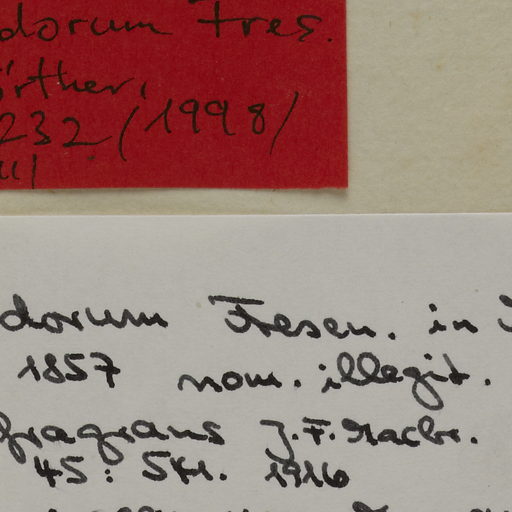 dorum Fres.
örther,
232/(1998)
dorum Fresen. in
1857 nom. illegit.
fragrans J.F. Macbr.
45: 541. 1916